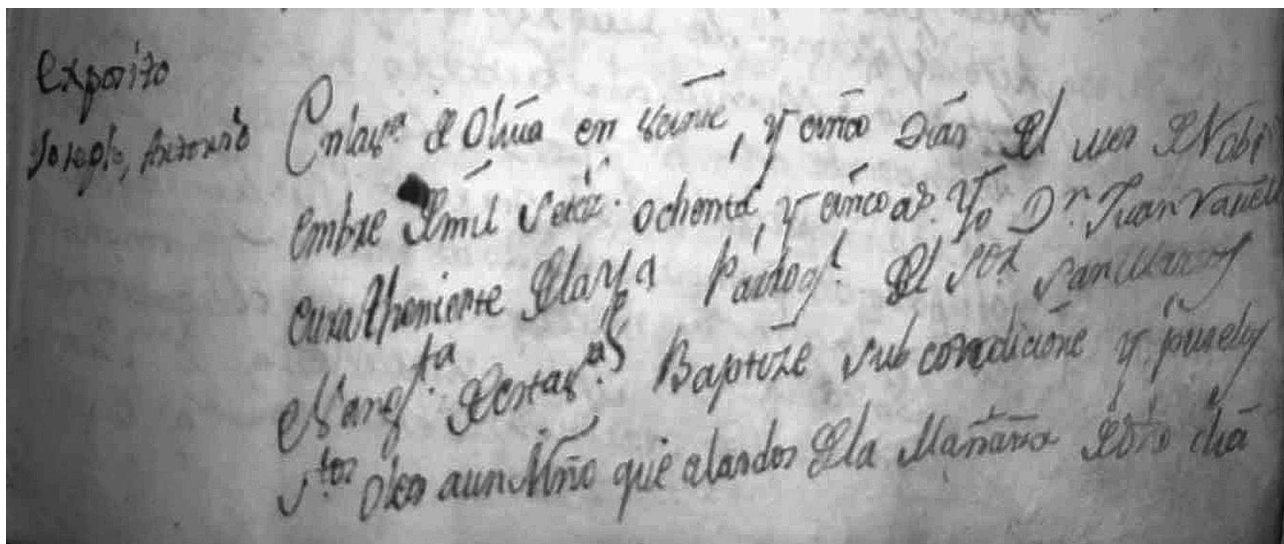 Exposito
Joseph, Antonio
En la ciu.d de Oliva en veinte, y cinco Dias del mes de Nobi
embre de mil setez. ochenta, y cinco as. Yo Dn. Juan
cura theniente de la Parroql. del Sor. San Marcos
Evangta. de esta Baptize sub condicione y puse los
stos oleos a un Niño que a las dos de la Mañana de dho dia